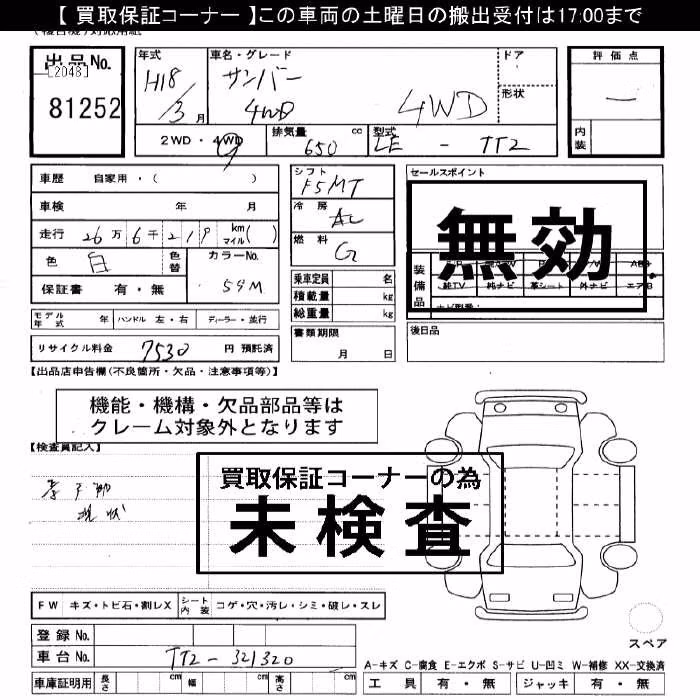 【 買取保証コーナー 】この車両の土曜日の搬出受付は17:00まで
出品No.
[2048]
81252
年式
H18/3月
車名・グレード
サンバー
4WD
4WD
ドア
形状
評価点
内装
2WD・4WD
排気量 650 cc
型式 LE - TT2
車歴 自家用・( )
車検 年 月
走行 26万6千219 km マイル( )
色 白 色替
カラーNo. 59M
保証書 有・無
モデル年式 年 ハンドル 左・右 ディーラー・並行
リサイクル料金 7530 円 預託済
シフト F5MT
冷房 AC
燃料 G
乗車定員 名
積載量 kg
総重量 kg
書類期限
月 日
セールスポイント
無効
装備品
純TV 純ナビ 革シート 外ナビ エアB
後日品
【出品店申告欄(不良箇所・欠品・注意事項等)】
機能・機構・欠品部品等は
クレーム対象外となります
【検査員記入】
現状
買取保証コーナーの為
未検査
FW キズ・トビ石・割レX
シート内装 コゲ・穴・汚レ・シミ・破レ・スレ
登録No.
車台No. TT2-321320
車庫証明用 長さ cm 幅 cm 高さ cm
スペア
A-キズ C-腐食 E-エクボ S-サビ U-凹ミ W-補修 XX-交換済
工具 有・無 ジャッキ 有・無